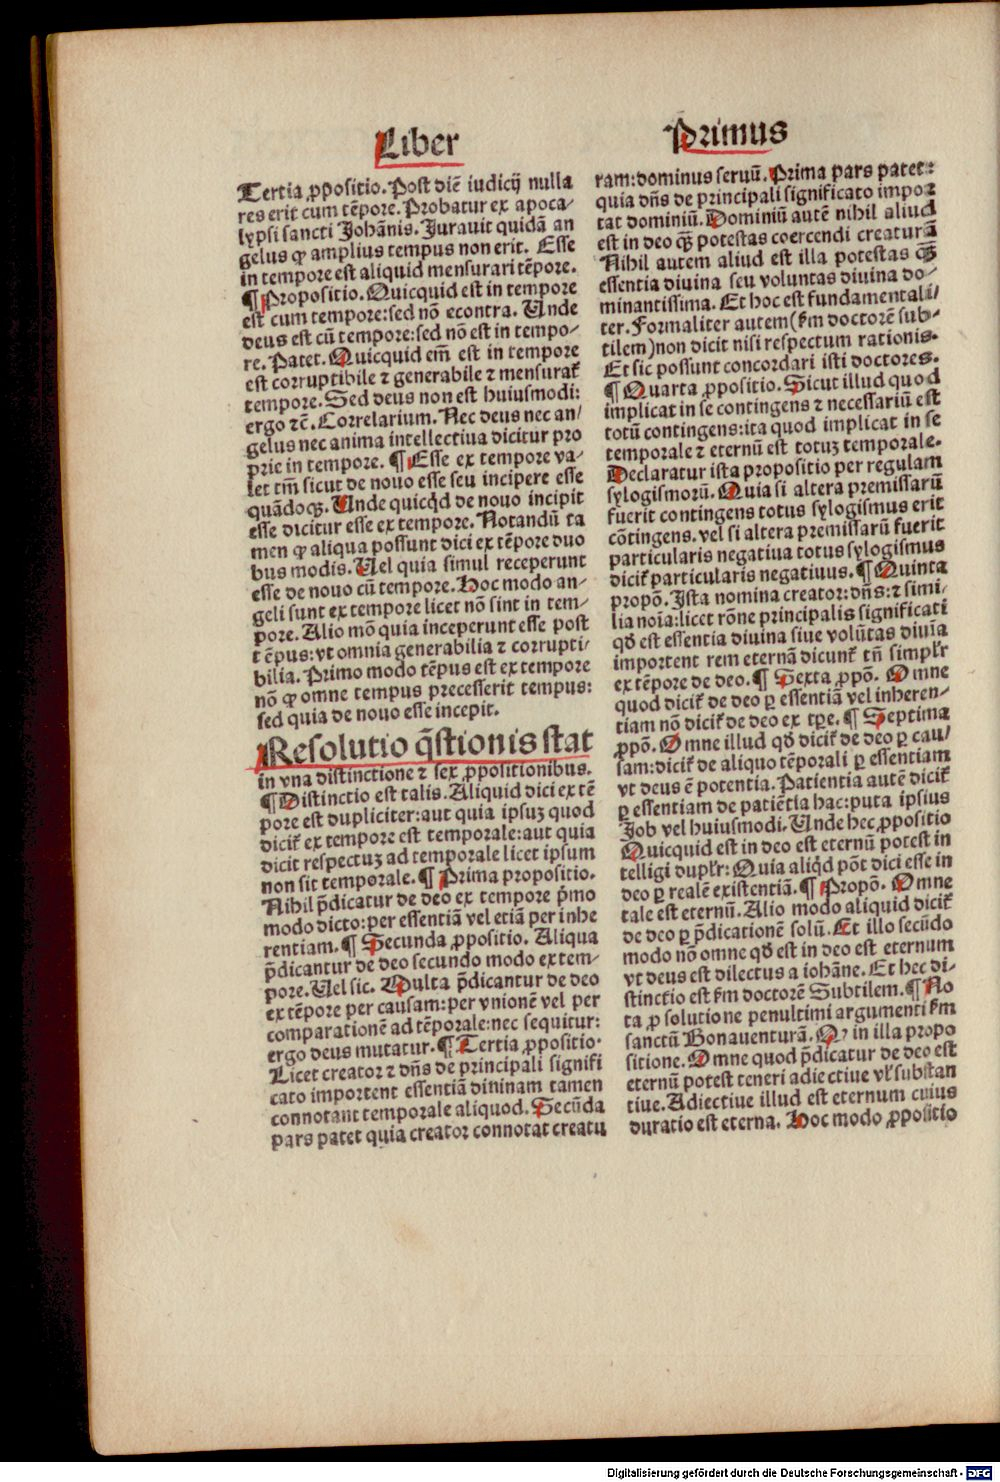 Liber
Primus
Tertia ꝓpositio. Post diē iudicij nulla
res erit cum tēpore. Probatur ex apoca⸗
lypsi sancti Johānis. Jurauit quidā an
gelus ꝙ amplius tempus non erit. Esse
in tempore est aliquid mensurari tēpore.
¶ Propositio. Quicquid est in tempore
est cum tempore: sed nō econtra. Unde
deus est cū tempore: sed nō est in tempo⸗
re. Patet. Quicquid em̄ est in tempore
est corruptibile ⁊ generabile ⁊ mensurat᷑
tempore. Sed deus non est huiusmodi:
ergo ⁊c̄. Correlarium. Nec deus nec an⸗
gelus nec anima intellectiua dicitur pro
prie in tempore. ¶ Esse ex tempore va⸗
let tm̄ sicut de nouo esse seu incipere esse
quādoqꝫ. Unde quicq̇d de nouo incipit
esse dicitur esse ex tempore. Notandū ta
men ꝙ aliqua possunt dici ex tēpore duo
bus modis. Uel quia simul receperunt
esse de nouo cū tempore. Hoc modo an⸗
geli sunt ex tempore licet nō sint in tem⸗
pore. Alio mō quia inceperunt esse post
tēpus: vt omnia generabilia ⁊ corrupti⸗
bilia. Primo modo tēpus est ex tempore
nō ꝙ omne tempus precesserit tempus:
sed quia de nouo esse incepit.
Resolutio q̄stionis stat
in vna distinctione ⁊ sex ꝓpositionibus.
¶ Distinctio est talis. Aliquid dici ex tē
pore est dupliciter: aut quia ipsuꝫ quod
dicit᷑ ex tempore est temporale: aut quia
dicit respectuꝫ ad temporale licet ipsum
non sit temporale. ¶ Prima propositio.
Nihil p̄dicatur de deo ex tempore p̄mo
modo dicto: per essentiā vel etiā per inhe
rentiam. ¶ Secunda ꝓpositio. Aliqua
p̄dicantur de deo secundo modo ex tem⸗
pore. Uel sic. Multa p̄dicantur de deo
ex tēpore per causam: per vnionē vel per
comparationē ad tēporale: nec sequitur:
ergo deus mutatur. ¶ Tertia ꝓpositio.
Licet creator ⁊ dn̄s de principali signifi
cato importent essentiā diuinam tamen
connotant temporale aliquod. Secūda
pars patet quia creator connotat creatu
ram: dominus seruū. Prima pars patet:
quia dn̄s de principali significato impor
tat dominiū. Dominiū autē nihil aliud
est in deo qꝫ̄ potestas coercendi creaturā
Nihil autem aliud est illa potestas qꝫ̄
essentia diuina seu voluntas diuina do⸗
minantissima. Et hoc est fundamentali⸗
ter. Formaliter autem (ẜm doctorē sub⸗
tilem) non dicit nisi respectum rationis.
Et sic possunt concordari isti doctores.
¶ Quarta ꝓpositio. Sicut illud quod
implicat in se contingens ⁊ necessariū est
totū contingens: ita quod implicat in se
temporale ⁊ eternū est totuꝫ temporale.
Declaratur ista propositio per regulam
sylogismorū. Quia si altera premissarū
fuerit contingens totus sylogismus erit
cōtingens. vel si altera premissarū fuerit
particularis negatiua totus sylogismus
dicit᷑ particularis negatiuus. ¶ Quinta
propō. Ista nomina creator: dn̄s: ⁊ simi⸗
lia noīa: licet rōne principalis significati
qd̄ est essentia diuina siue volūtas diuīa
importent rem eternā dicunt᷑ tn̄ simpl'r
ex tēpore de deo. ¶ Sexta ꝓpō. Omne
quod dicit᷑ de deo ꝑ essentiā vel inheren⸗
tiam nō dicit᷑ de deo ex tp̄e. ¶ Septima
ꝓpō. Omne illud qd̄ dicit᷑ de deo ꝑ cau⸗
sam: dicit᷑ de aliquo tēporali ꝑ essentiam
vt deus ē potentia. Patientia autē dicit᷑
ꝑ essentiam de patiētia hac: puta ipsius
Job vel huiusmodi. Unde hec ꝓpositio
Quicquid est in deo est eternū potest in
telligi dupl'r: Quia aliq̇d pōt dici esse in
deo ꝑ realē existentiā. ¶ Propō. Omne
tale est eternū. Alio modo aliquid dicit᷑
de deo ꝑ p̄dicationē solū. Et illo secūdo
modo nō omne qd̄ est in deo est eternum
vt deus est dilectus a iohāne. Et hec di⸗
stinctio est ẜm doctorē Subtilem. ¶ No
ta ꝓ solutione penultimi argumenti ẜm
sanctū Bonauenturā. Qꝫ in illa propo
sitione. Omne quod p̄dicatur de deo est
eternū potest teneri adiectiue vl' substan
tiue. Adiectiue illud est eternum cuius
duratio est eterna. Hoc modo ꝓpositio
Digitalisierung gefördert durch die Deutsche Forschungsgemeinschaft - DFG